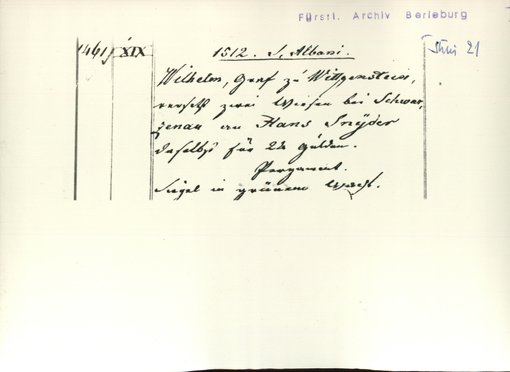 Fürstl. Archiv Berleburg
1461 XIX 1512. S. Albani. 21
Wilhelm, Graf zu Wittgenstein,
versetzt zwei Wiesen bei Schwar,
zenau an Hans Snÿder
daselbst für 22 Gulden.
Pergament.
Siegel in grünem Wachs.